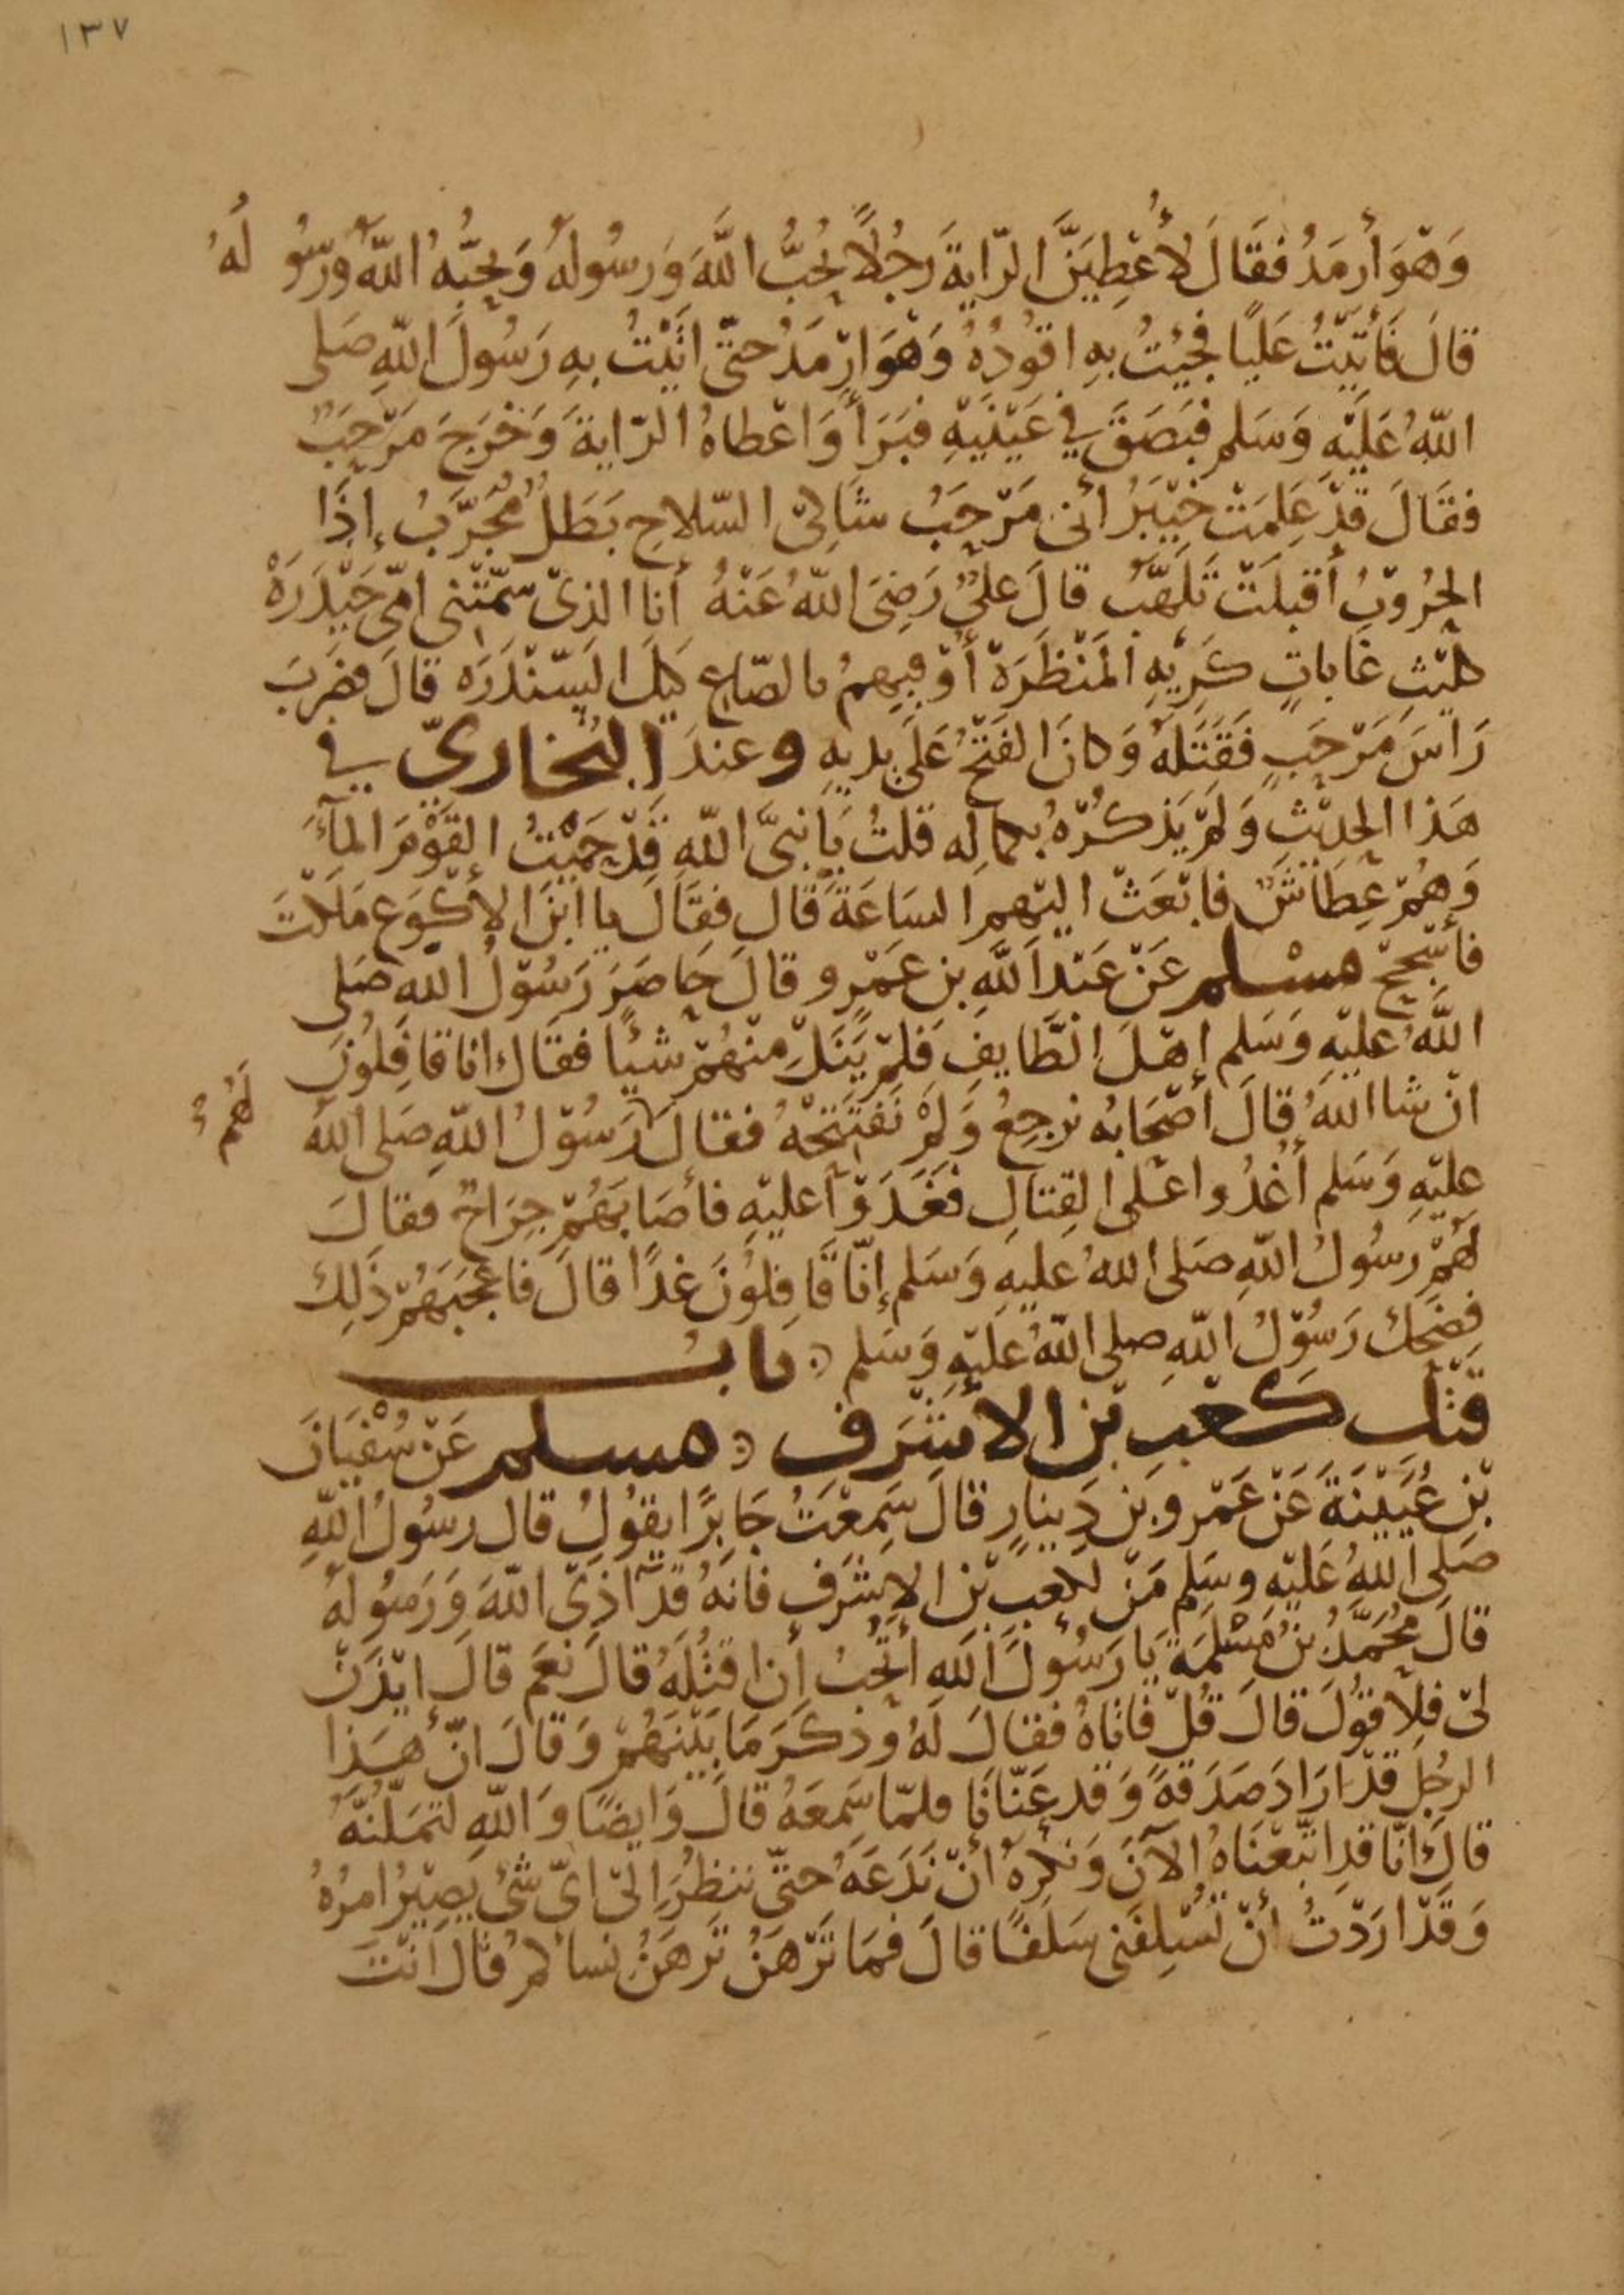 ١٣٧
وَهْوَ أَرمَدُ فَقَالَ لأُعْطِيَنَّ الرّايةَ رَجُلًا يُحِبُّ اللهَ وَرسُولَهُ وَيُحِبُّهُ اللهُ وَرسُولُهُ
قالَ فَأَتَيْتُ عَليًا فجِيْتُ بهِ اقُودُهُ وَهْوَ ارمَدُ حتّى اتَيْتُ بهِ رَسُولَ اللهِ صَلى
اللهُ عَلَيْهِ وَسَلم فبَصَقَ في عَيْنَيهِ فبَرَأ وَاعْطاهُ الرّايةَ وَخَرَجَ مَرْحَبٌ
فقَالَ قَدْ عَلِمَتْ خَيْبَرُ أنى مَرْحَبُ شَاكِى السّلاحِ بَطَلٌ مُجَرَّبُ إذَا
الحُرُوْبُ أقبَلَتْ تَلَهَّبُ قالَ عَلىٌّ رَضِىَ اللهُ عَنْهُ أنا الذىْ سَمّتْنى امّى حَيْدَرَهْ
كليْثِ غَاباتٍ كَرِيْهِ المَنْظَرَهْ أُوْفِيهِمُ بالصّاعِ كَيلَ السّنْدَرَه قالَ فضَرَبَ
رَاسَ مَرْحَبٍ فَقَتَلَهُ وَكانَ الفَتْحُ عَلَى يدَيهِ وعندَ البُخارىّ في
هَذا الحَديْثِ وَلَمْ يَذكُرْهُ بكماله قلتُ يَا نبىَّ اللهِ قَدْ حَمَيْتُ القَوْمَ المآءَ
وَهُمْ عِطَاشٌ فابْعَثْ اليْهم السَاعَةَ قَالَ فقَالَ يا ابْنَ الأكْوَعِ مَلَكْتَ
فأسْجِحْ مسْلم عَنْ عَبْدِ اللهِ بنِ عَمْرٍو قالَ حَاصَرَ رَسُوْلُ اللهِ صَلى
اللهُ عليْهِ وَسَلم اهْلَ الطّايفِ فَلمْ يَنَلْ منْهُمْ شيًا فقَالَ انا قافِلُونَ
انْ شا اللهُ قالَ أصْحَابُه نرجِعُ وَلمْ نَفتَتِحْهُ فقالَ لَهُمْ رَسُوْلُ اللهِ صَلى اللهُ
عليْهِ وَسَلم أغدُوا عَلى القِتالِ فَغَدَوْا عليْهِ فأصَابَهُمْ جِرَاحٌ فقالَ
لهُمْ رسُولُ اللهِ صَلى اللهُ عليهِ وَسَلم إنّا قَافِلُوْنَ غدًا قالَ فاعْجَبَهُمْ ذَلِكَ
فضَحِكَ رَسُوْلُ اللهِ صلى اللهُ عليْهِ وَسَلم ۞ بابُ
قتْل كَعْبِ بْن الاشْرَفِ ۞ مسلم عَنْ سُفْيَانَ
بْنِ عُيَيْنَةَ عَنْ عَمْرِو بْن دِينارٍ قالَ سَمِعْتُ جَابِرًا يقُولُ قالَ رسُولُ اللهِ
صَلى اللهُ عَليْهِ وسَلم مَنْ لكعبِ بْن الاشْرَفِ فانهُ قدْ آذىَ اللهَ وَرَسُولَهُ
قالَ مُحَمَّدُ بنُ مَسْلَمَةَ يَا رَسُولَ اللهِ أتُحِبُ أن اقتُلَهُ قالَ نعَم قالَ ايْذَنْ
لىْ فلأقوُلَ قالَ قُلْ فاتاهُ فقالَ لَهُ وَذكَرَ مَا بَيْنَهُمْ وَقالَ انّ هذا
الرجُلَ قدْ ارَادَ صَدَقةً وَقد عَنّانَا فلمّا سَمِعَهُ قالَ وَايضًا وَاللهِ لتَمَلُّنَّهُ
قالَ انّا قدِ اتّبعْنَاهُ الآنَ وَنكرهُ أنْ نَدَعَهُ حتّى ننظُرَ الىْ اىّ شَىْ يَصِيْرُ امرُهُ
وَقدْ ارَدْتُ أنْ تُسْلِفَنى سَلَفًا قالَ فمَا تَرْهَنُ تَرهَنُ نسا كمْ قالَ انْتَ